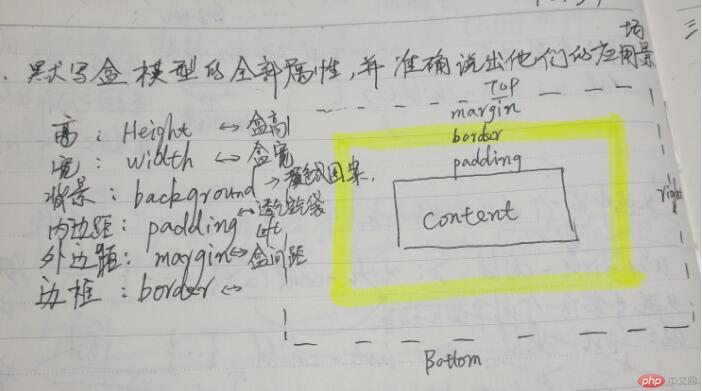 默写盒模型的全部属性,并准确说出他们的应用场景
高:Height ↔ 盒高
宽:width ↔ 盒宽
背景:background → 颜色或图案.
内边距:padding ↔
外边距:margin ↔ 盒间距
边框:border ↔
Top
margin
border
padding
content
left
right
Bottom
三
php 中文网